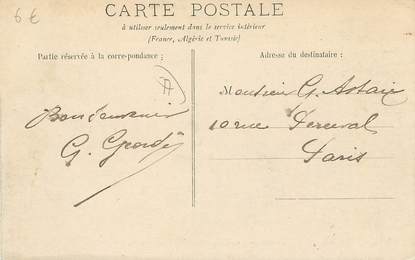 6 €
CARTE POSTALE
à utiliser seulement dans le service intérieur
(France, Algérie et Tunisie)
Partie réservée à la correspondance ;
Adresse du destinataire :
A
Bon souvenir
G.
Monsieur G. Astaix
10 rue Perceval
Paris